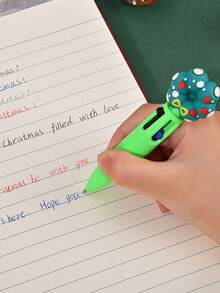 mas!
tmas!
stmas!
stmas!
Christmas filled with love
istmas be with you
is here. Hope you